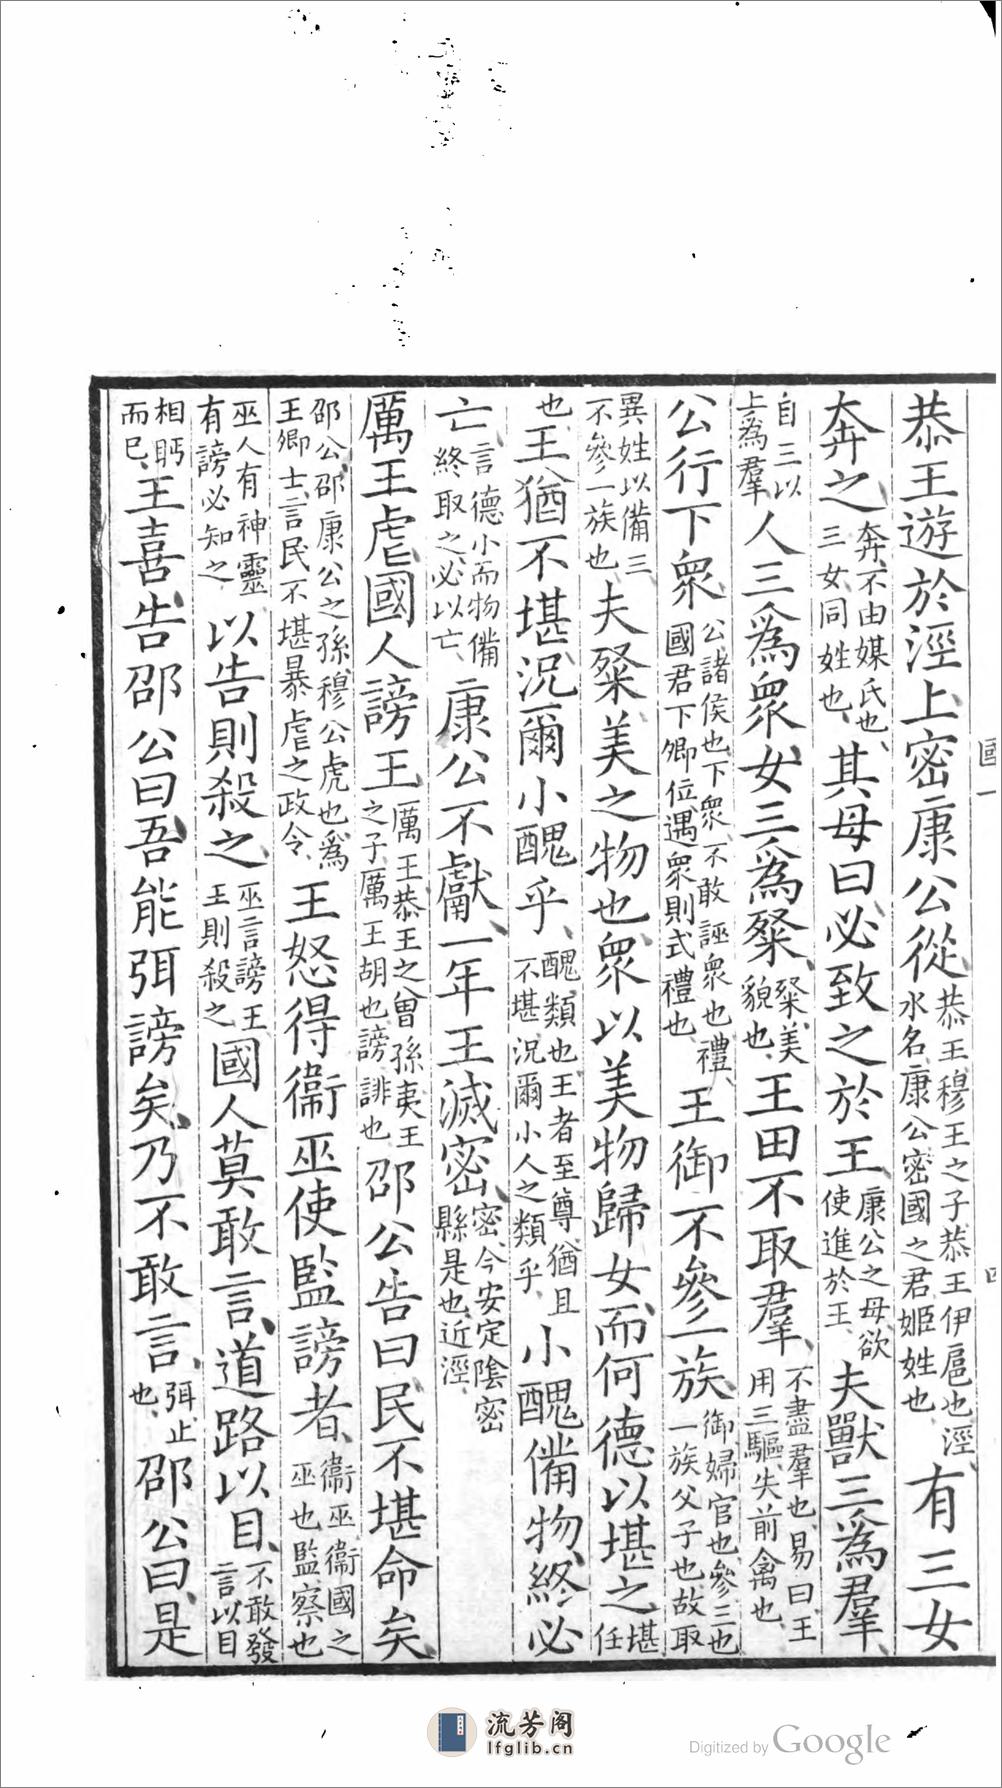 恭王遊於涇上密康公從恭王穆王之子恭王伊扈也涇水名康公密國之君姬姓也有三女
奔之奔不由媒氏也三女同姓也其母曰必致之於王康公之母欲使進於王夫獸三爲羣
自三以上爲羣人三爲衆女三爲粲粲美貌也王田不取羣不盡羣也易曰王用三驅失前禽也
公行下衆公諸侯也下衆不敢誣衆也禮國君下卿位遇衆則式禮也王御不參一族御婦官也參三也一族父子也故取
異姓以備三不參一族也夫粲美之物也衆以美物歸女而何德以堪之堪任
也王猶不堪況爾小醜乎醜類也王者至尊猶且不堪況爾小人之類乎小醜備物終必
亡言德小而物備終取之必以亡康公不獻一年王滅密密今安定陰密縣是也近涇
厲王虐國人謗王厲王恭王之曾孫夷王之子厲王胡也謗誹也邵公告曰民不堪命矣
邵公邵康公之孫穆公虎也爲王卿士言民不堪暴虐之政令王怒得衞巫使監謗者衞巫衞國之巫也監察也
巫人有神靈有謗必知之以告則殺之巫言謗王王則殺之國人莫敢言道路以目不敢發言以目
相眄而已王喜告邵公曰吾能弭謗矣乃不敢言弭止也邵公曰是
國一
四
流芳阁
lfglib.cn
Digitized by Google